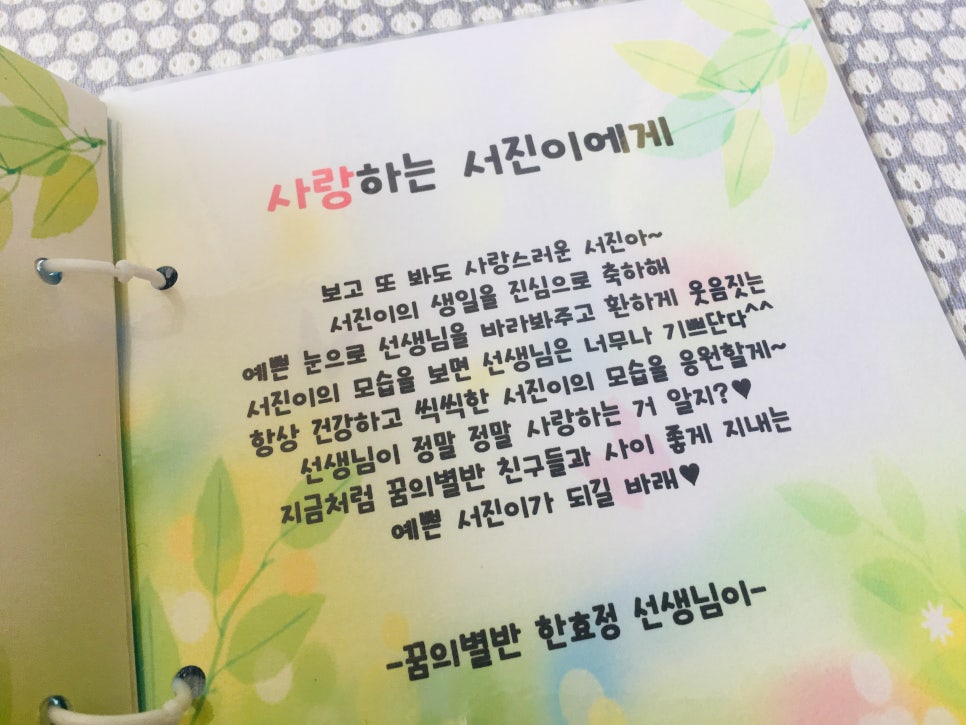 사랑하는 서진이에게
보고 또 봐도 사랑스러운 서진아~
서진이의 생일을 진심으로 축하해
예쁜 눈으로 선생님을 바라봐주고 환하게 웃음짓는
서진이의 모습을 보면 선생님은 너무나 기쁘단다^^
항상 건강하고 씩씩한 서진이의 모습을 응원할게~
선생님이 정말 정말 사랑하는 거 알지?♥
지금처럼 꿈의별반 친구들과 사이 좋게 지내는
예쁜 서진이가 되길 바래♥
-꿈의별반 한효정 선생님이-